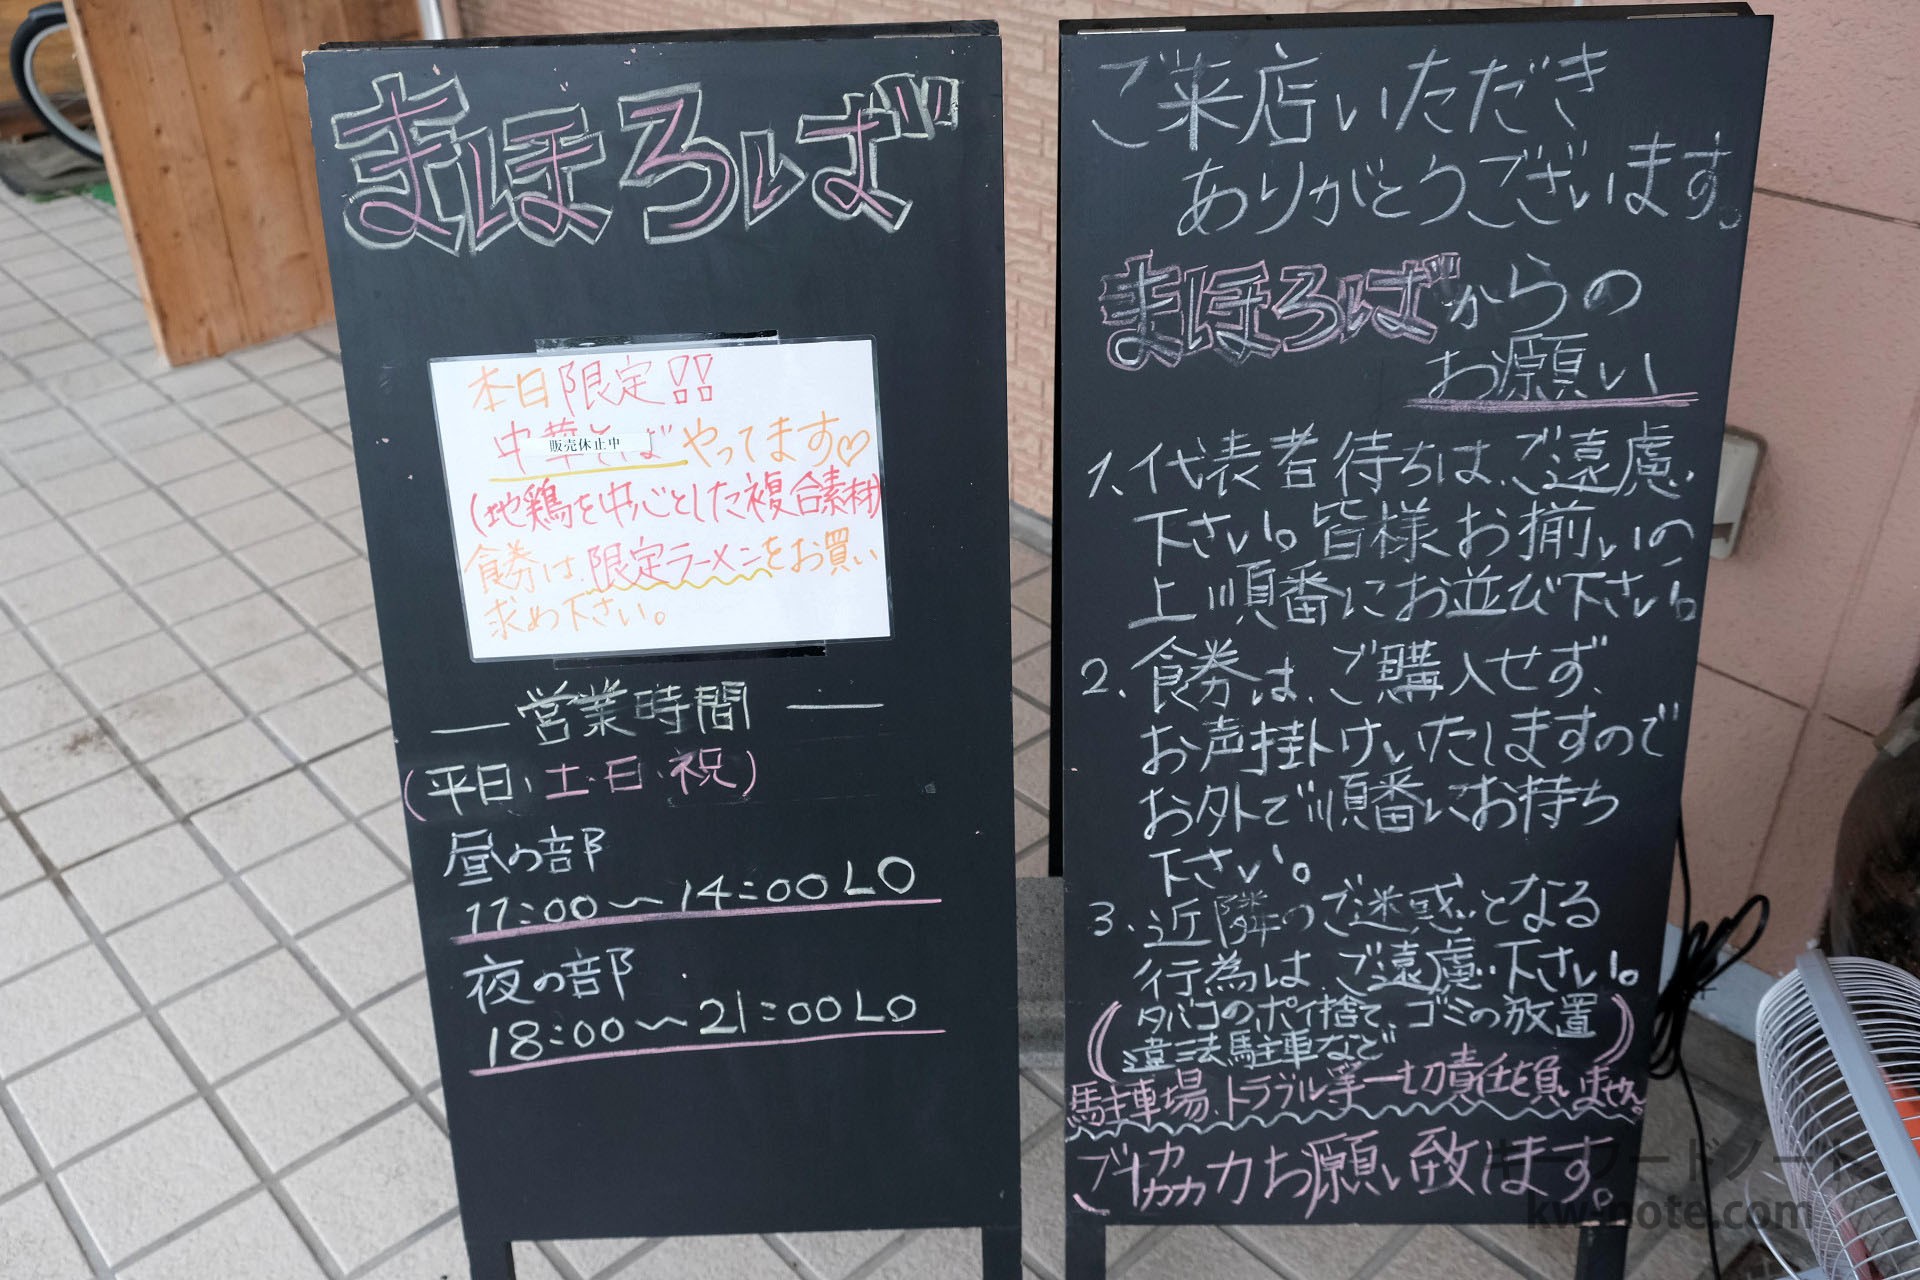 まほろば
本日限定!!
中華そばやってます♡
販売休止中
(地鶏を中心とした複合素材)
食券は、限定ラーメンをお買い
求め下さい。
営業時間
(平日、土・日・祝)
昼の部
11:00〜14:00 LO
夜の部
18:00〜21:00 LO
ご来店いただき
ありがとうございます。
まほろばからの
お願い
1、代表者待ちは、ご遠慮
下さい。皆様お揃いの
上順番にお並び下さい。
2、食券は、ご購入せず、
お声掛けいたしますので
お外で順番にお待ち
下さい。
3、近隣のご迷惑となる
行為は、ご遠慮下さい。
(タバコのポイ捨て、ゴミの放置
違法駐車など)
駐車場、トラブル等一切責任を負いません。
ご協力お願い致します。
キーワードノート
kw-note.com